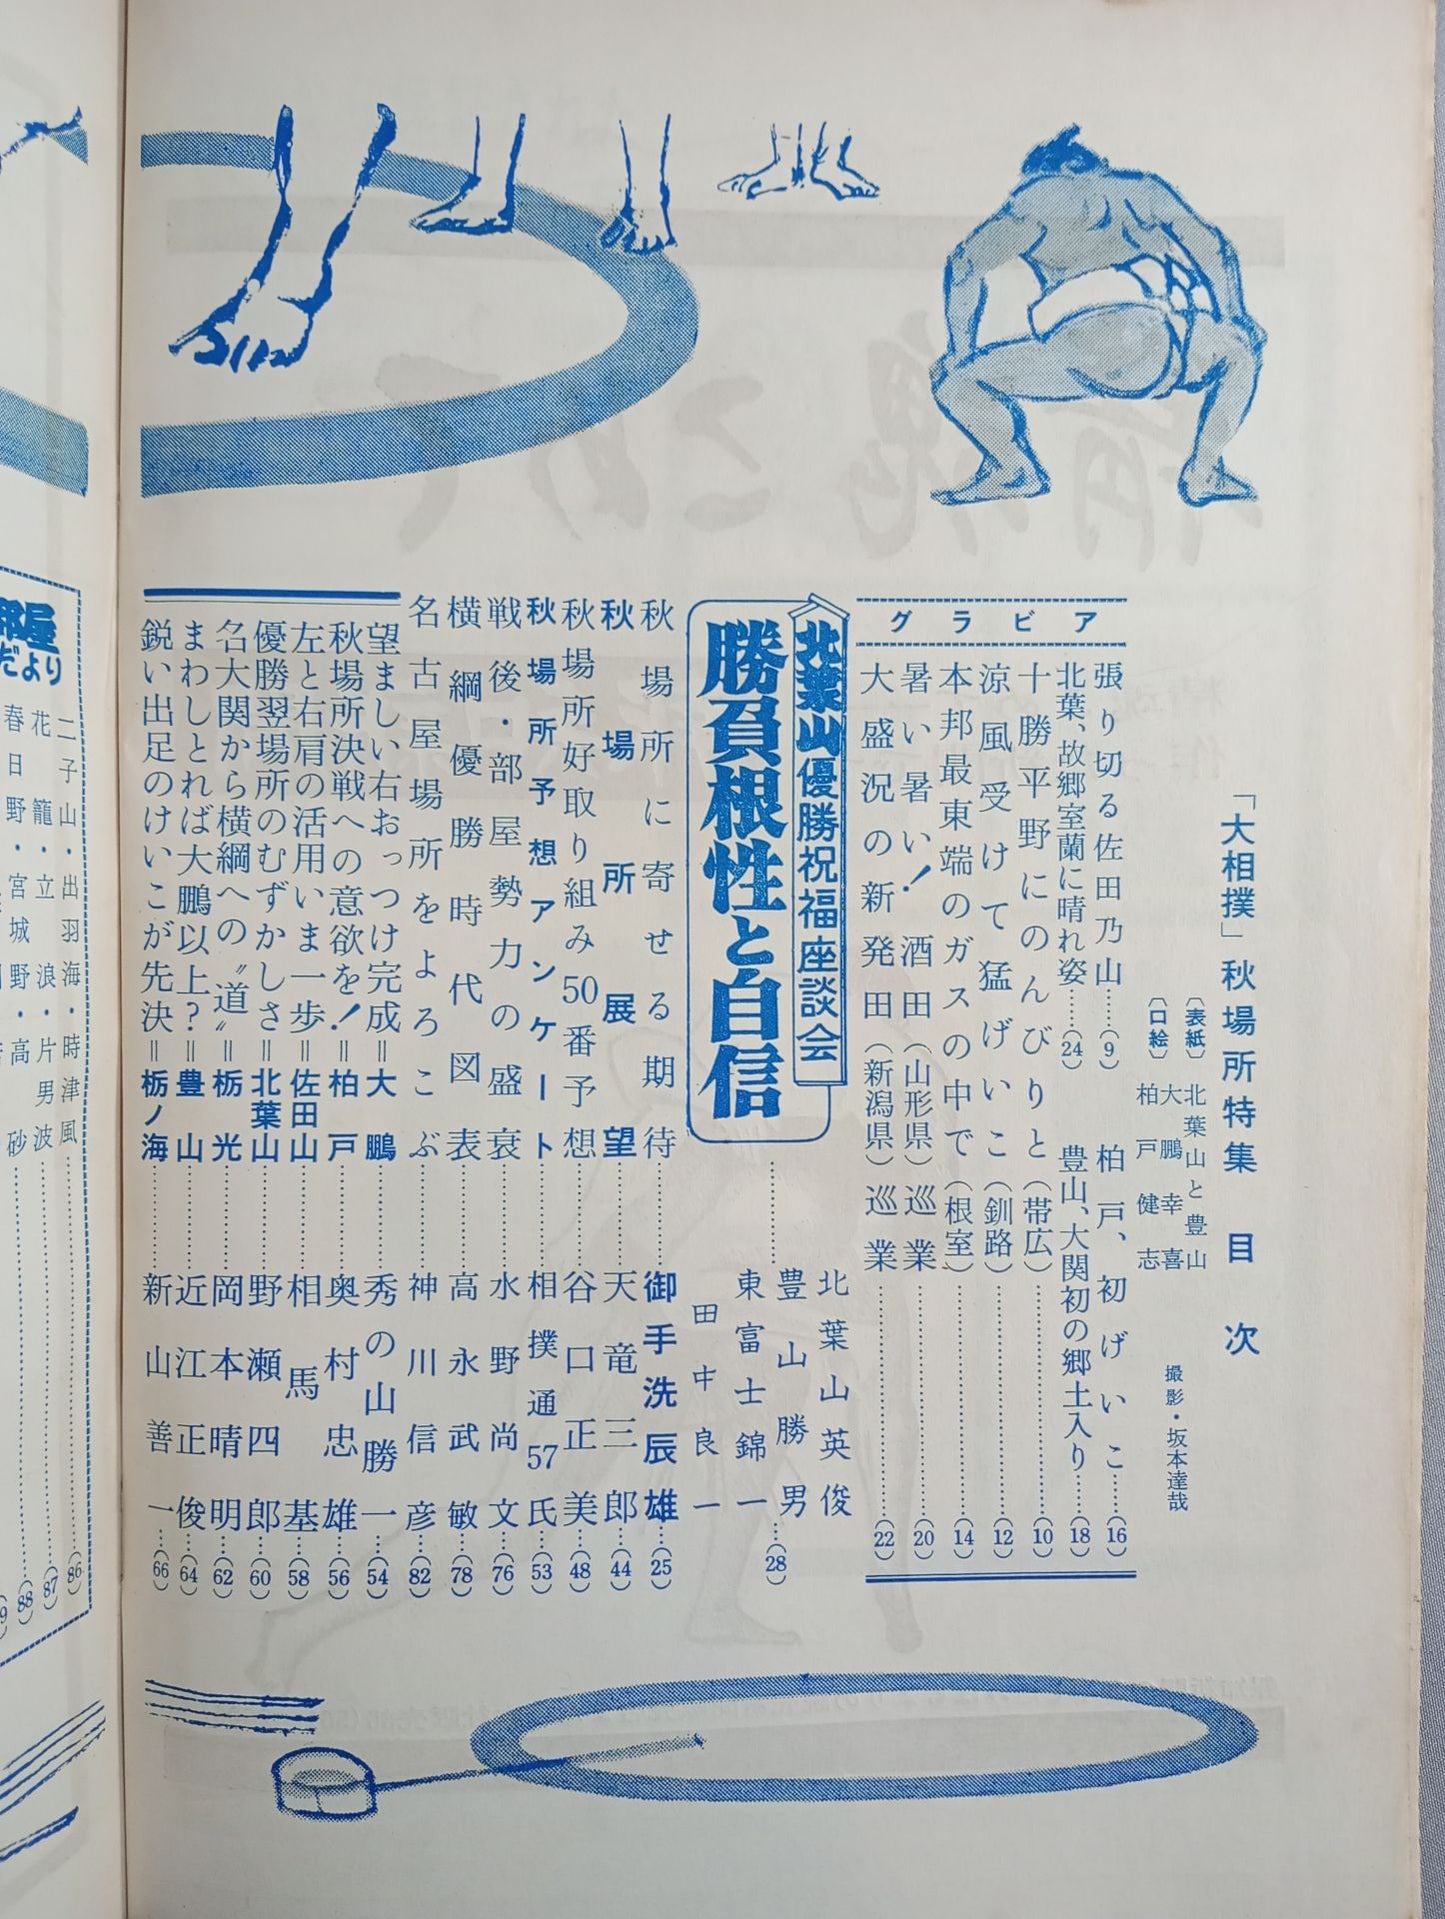 「大相撲」秋場所特集 目次
(表紙) 北葉山と豊山
大鵬幸喜
(口絵) 柏戸健志
撮影・坂本達哉
グラビア
張り切る佐田乃山……(9)
柏戸、初げいこ……(16)
北葉、故郷室蘭に晴れ姿……(24)
豊山、大関初の郷土入り……(18)
十勝平野にのんびりと(帯広)……(10)
涼風受けて猛げいこ(釧路)……(12)
本邦最東端のガスの中で(根室)……(14)
暑い暑い!酒田(山形県)巡業……(20)
大盛況の新発田(新潟県)巡業……(22)
北葉山優勝祝福座談会
勝負根性と自信……
北葉山英俊
豊山勝男
東富士錦一
田中良一
……(28)
秋場所に寄せる期待……御手洗辰雄……(25)
秋場所展望……天竜三郎……(44)
秋場所好取り組み50番予想……谷口正美……(48)
秋場所予想アンケート……相撲通57氏……(53)
戦後・部屋勢力の盛衰……水野尚文……(76)
横綱優勝時代図表……高永武敏……(78)
名古屋場所をよろこぶ……神川信彦……(82)
望ましい右おっつけ完成=大鵬……秀の山勝一……(54)
秋場所決戦への意欲を!=柏戸……奥村忠雄……(56)
左と右肩の活用いま一歩=佐田山……相馬基……(58)
優勝翌場所のむずかしさ=北葉山……野瀬四郎……(60)
名大関から横綱への〝道〟=栃光……岡本晴明……(62)
まわしとれば大鵬以上?=豊山……近江正俊……(64)
鋭い出足のけいこが先決=栃ノ海……新山善一……(66)
部屋だより
二子山・出羽海・時津風……(86)
花籠・立浪・片男波……(87)
春日野・宮城野・高砂……(88)